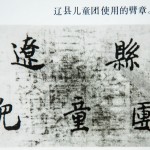 辽县儿童团使用的臂章。
遼縣
兒童團